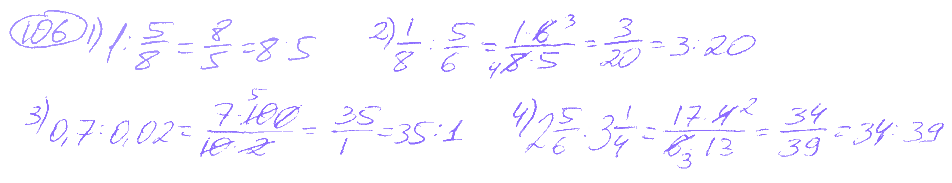 106 1) 1 : 5/8 = 8/5 = 8 : 5 2) 1/8 : 5/6 = 1·6 3/4 8·5 = 3/20 = 3 : 20
3) 0,7 : 0,02 = 7·100 5/10·2 = 35/1 = 35 : 1 4) 2 5/6 : 3 1/4 = 17·4 2/6 3·13 = 34/39 = 34 : 39